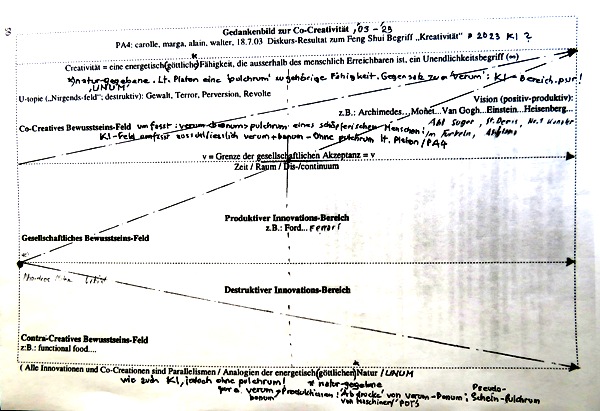 Gedankenbild zur Co-Creativität, '03 - '23
PA4: carolle, marga, alain, walter, 18.7.03 Diskurs-Resultat zum Feng Shui Begriff „Kreativität" 2023 KI ?
Creativität = eine energetisch (göttlich) Fähigkeit, die ausserhalb des menschlich Erreichbaren ist, ein Unendlichkeitsbegriff (∞)
natur-gegebene. Lt. Platon eine 'pulchrum' zugehörige Fähigkeit. Gegensatz zum 'verum': KI-Bereich pur!
'UNUM'
U-topie („Nirgends-feld"; destruktiv): Gewalt, Terror, Perversion, Revolte
Vision (positiv-produktiv):
z.B.: Archimedes...Monet...Van Gogh...Einstein...Heisenberg...
Abt Suger, St. Denis,
Co-Creatives Bewusstseins-Feld umfasst: verum-bonum-pulchrum eines schöpferischen Menschen!
KI-Feld umfasst ausschliesslich verum+bonum - Ohne pulchrum lt. Platon/PA4
v = Grenze der gesellschaftlichen Akzeptanz = v
Zeit / Raum / Dis-/continuum
Produktiver Innovations-Bereich
z.B.: Ford... Ferrari
Gesellschaftliches Bewusstseins-Feld
Destruktiver Innovations-Bereich
Contra-Creatives Bewusstseins-Feld
z.B: functional food....
( Alle Innovationen und Co-Creationen sind Parallelismen / Analogien der energetisch (göttlichen) Natur / UNUM
wie zudem KI, jedoch ohne pulchrum! * natur-gegebene Pseudo-
verum, Produktionen: 'Abdrücke' von verum-bonum; Schein-pulchrum
bonum von Maschinen